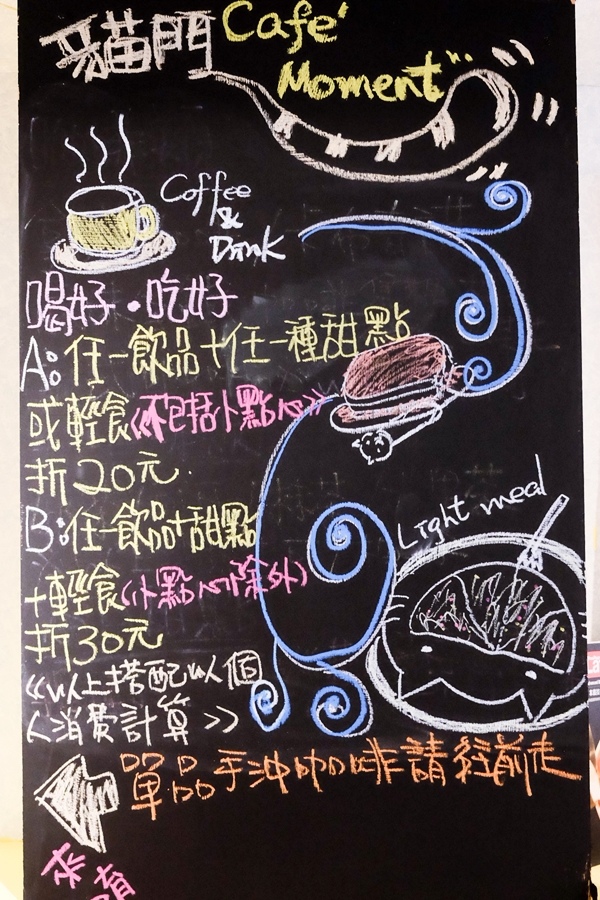 貓門 Cafe'
Moment
Coffee
&
Drink
喝好·吃好
A:任一飲品+任一種甜點
或輕食《不包括小點心》
折20元.
B:任一飲品+甜點
+輕食(小點心除外)
折30元
Light meal
《以上搭配以個
人消費計算》
單品手沖咖啡請往前走